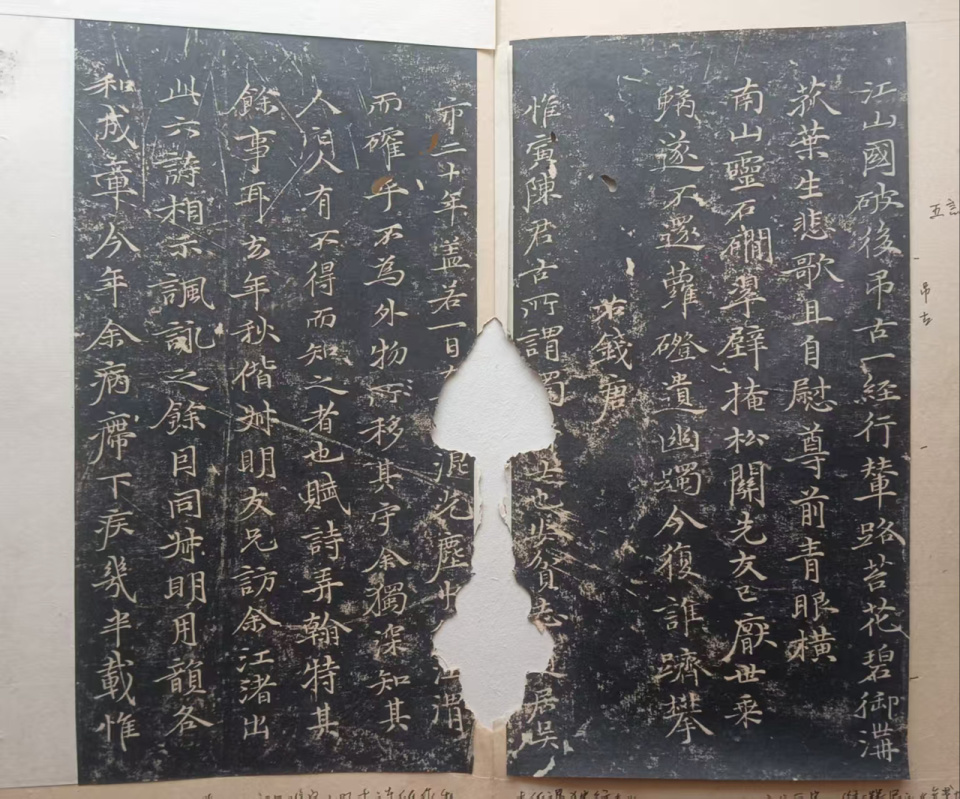 江山國破後吊古一經行輦路苔花碧御溝
荻葉生悲歌且自慰尊前青眼橫
南山靈石磵翠壁掩松關先友已厭世乘
驕遂不還蘿磴遺幽躅今復誰躋攀
右錢唐
惟寅陳君古所謂獨也安貧志居吳
市二十年蓋若一日混光塵渭
而確乎不為外物所移其守余獨深知其
人間人有不得而知之者也賦詩弄翰特其
餘事耳去年秋偕姪明友兄訪余江渚出
此六詩相示諷詠之餘因同姪明用韻各
和成章今年余病滯下疾幾半載惟
五言
吊古